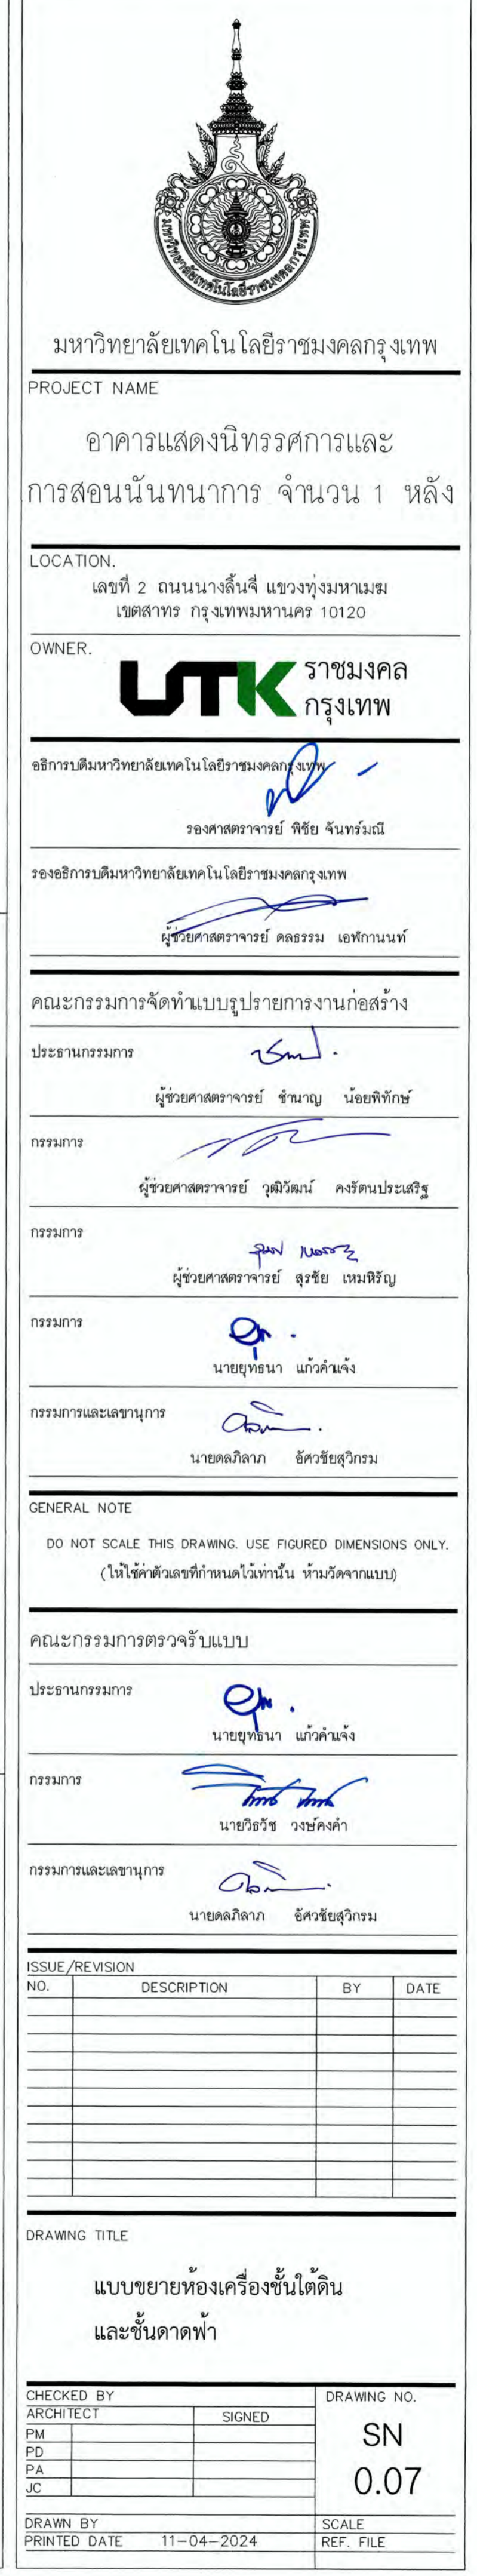 มหาวิทยาลัยเทคโนโลยีราชมงคลกรุงเทพ
มหาวิทยาลัยเทคโนโลยีราชมงคลกรุงเทพ
PROJECT NAME
อาคารแสดงนิทรรศการและ
การสอนนันทนาการ จำนวน 1 หลัง
LOCATION.
เลขที่ 2 ถนนนางลิ้นจี่ แขวงทุ่งมหาเมฆ
เขตสาทร กรุงเทพมหานคร 10120
OWNER.
UTK ราชมงคล
กรุงเทพ
อธิการบดีมหาวิทยาลัยเทคโนโลยีราชมงคลกรุงเทพ
รองศาสตราจารย์ พิชัย จันทร์มณี
รองอธิการบดีมหาวิทยาลัยเทคโนโลยีราชมงคลกรุงเทพ
ผู้ช่วยศาสตราจารย์ ดลธรรม เอฬกานนท์
คณะกรรมการจัดทำแบบรูปรายการงานก่อสร้าง
ประธานกรรมการ
ผู้ช่วยศาสตราจารย์ ชำนาญ น้อยพิทักษ์
กรรมการ
ผู้ช่วยศาสตราจารย์ วุฒิวัฒน์ คงรัตนประเสริฐ
กรรมการ
ผู้ช่วยศาสตราจารย์ สุรชัย เหมหิรัญ
กรรมการ
นายยุทธนา แก้วคำแจ้ง
กรรมการและเลขานุการ
นายดลภิลาภ อัศวชัยสุวิกรม
GENERAL NOTE
DO NOT SCALE THIS DRAWING. USE FIGURED DIMENSIONS ONLY.
(ให้ใช้ค่าตัวเลขที่กำหนดไว้เท่านั้น ห้ามวัดจากแบบ)
คณะกรรมการตรวจรับแบบ
ประธานกรรมการ
นายยุทธนา แก้วคำแจ้ง
กรรมการ
นายวิธวัช วงษ์คงคำ
กรรมการและเลขานุการ
นายดลภิลาภ อัศวชัยสุวิกรม
ISSUE/REVISION
NO. DESCRIPTION BY DATE
DRAWING TITLE
แบบขยายห้องเครื่องชั้นใต้ดิน
และชั้นดาดฟ้า
CHECKED BY DRAWING NO.
ARCHITECT SIGNED
PM
PD
PA
JC
SN
0.07
DRAWN BY SCALE
PRINTED DATE 11-04-2024 REF. FILE